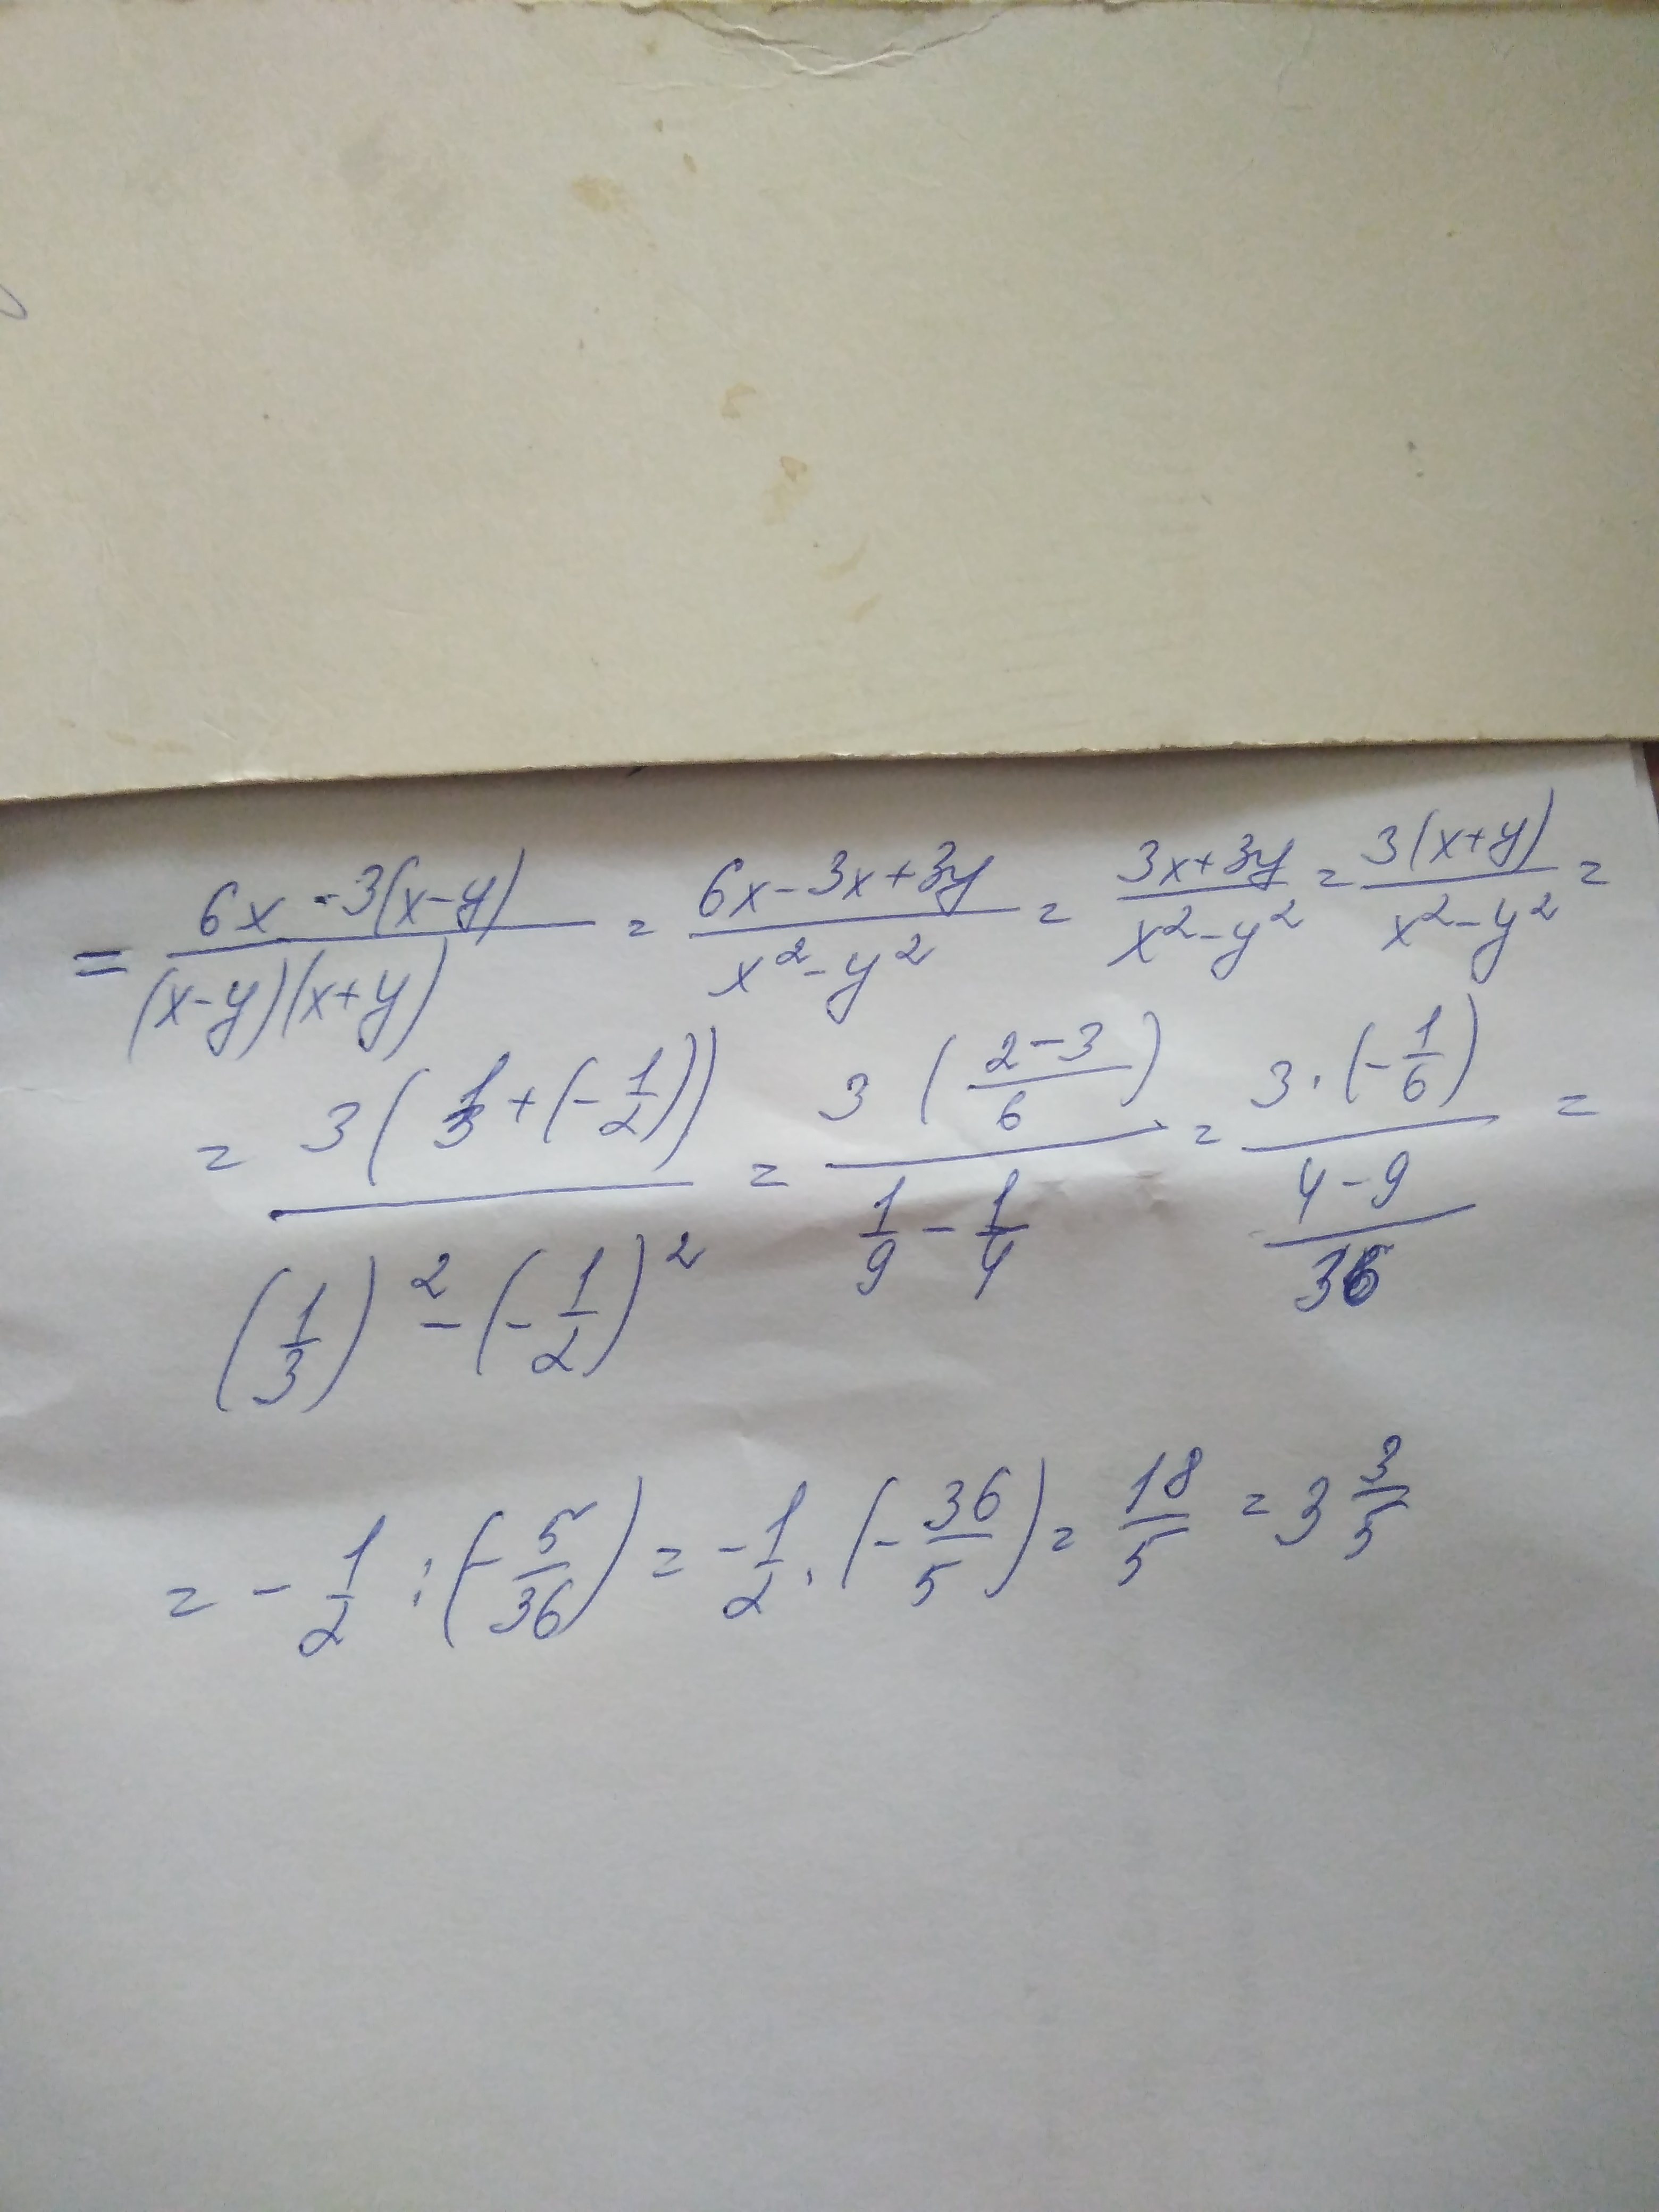 = (6x - 3(x-y))/((x-y)(x+y)) = (6x - 3x + 3y)/(x² - y²) = (3x + 3y)/(x² - y²) = (3(x+y))/(x² - y²) =
= (3(1/3 + (-1/2)))/((1/3)² - (-1/2)²) = (3((2-3)/6))/(1/9 - 1/4) = (3·(-1/6))/((4-9)/36) =
= -1/2 : (-5/36) = -1/2 · (-36/5) = 18/5 = 3 3/5